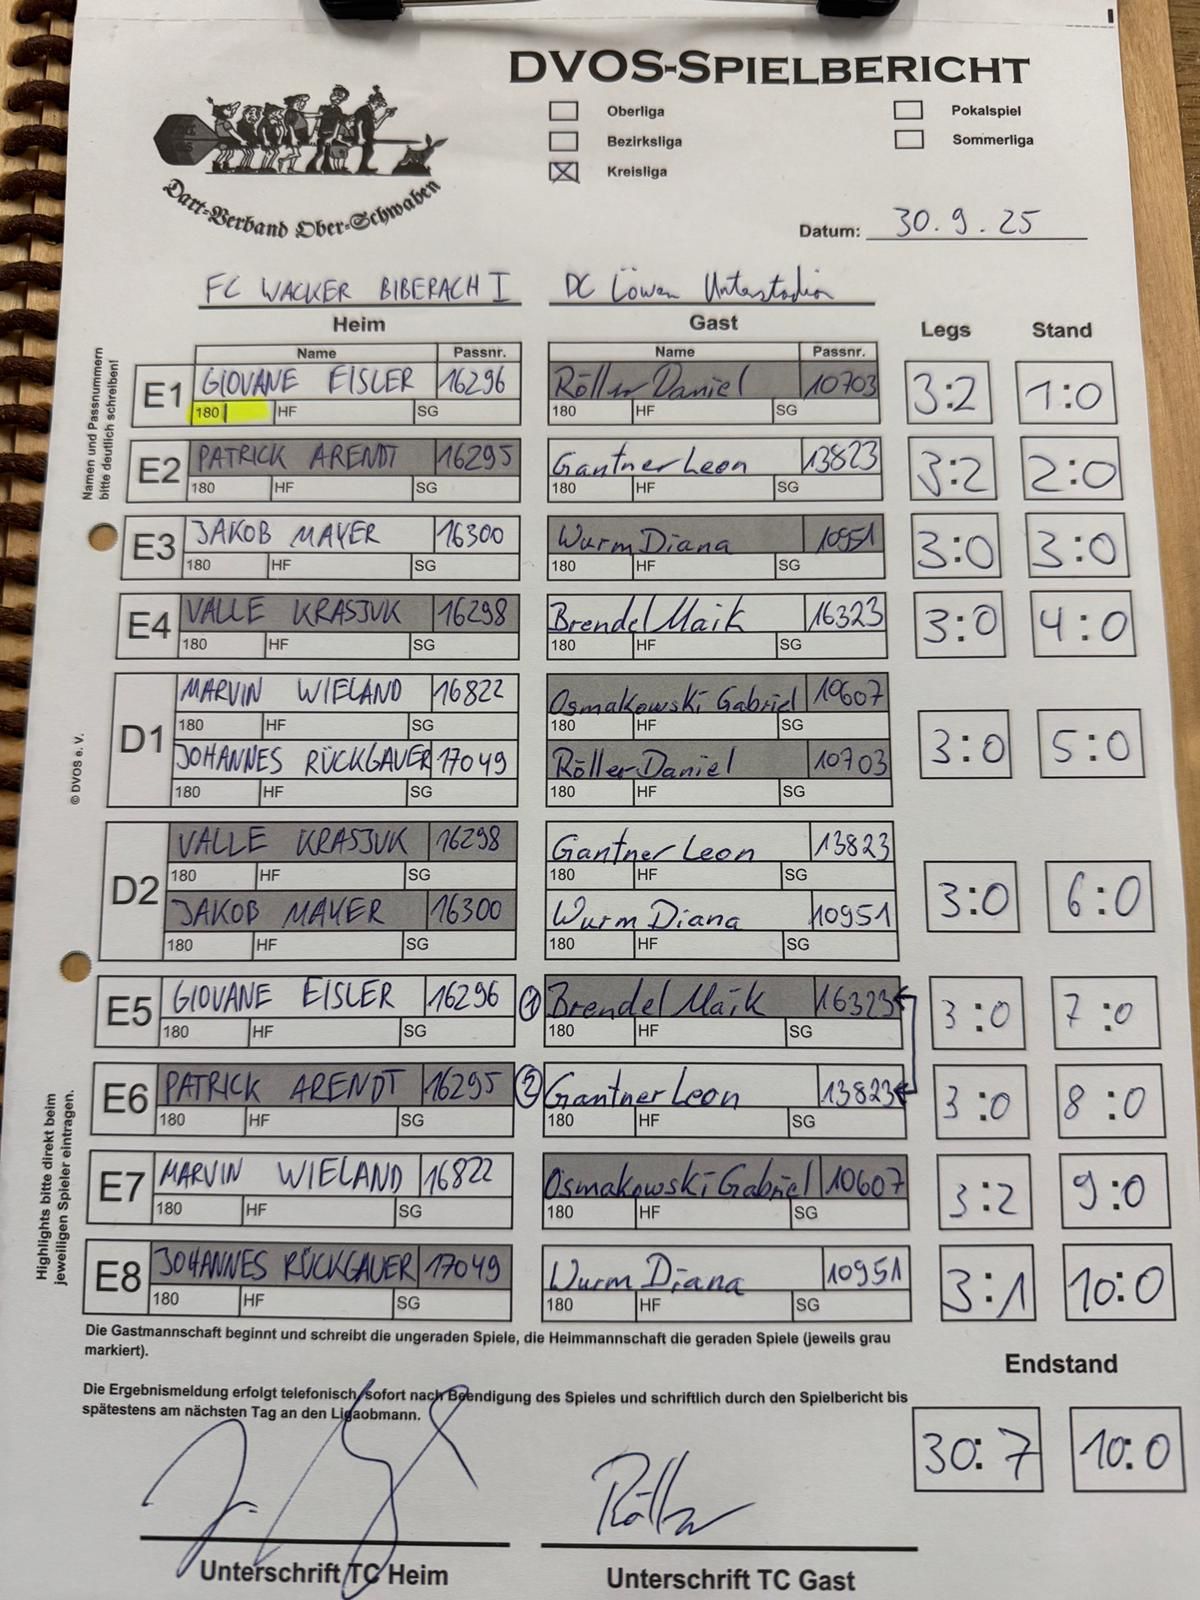 DVOS-SPIELBERICHT
Oberliga
Pokalspiel
Bezirksliga
Sommerliga
Kreisliga
Dart-Verband Ober-Schwaben
Datum: 30.9.25
FC WACKER BIBERACH I DC Löwen Unterstadion
Heim Gast Legs Stand
Namen und Passnummern
bitte deutlich schreiben!
Name Passnr. Name Passnr.
E1 GIOVANE EISLER 16296 Röller Daniel 10703 3:2 1:0
180 | HF SG 180 HF SG
E2 PATRICK ARENDT 16295 Gantner Leon 13823 3:2 2:0
180 HF SG 180 HF SG
E3 JAKOB MAYER 16300 Wurm Diana 10951 3:0 3:0
180 HF SG 180 HF SG
E4 VALLE KRASJUK 16298 Brendel Maik 16323 3:0 4:0
180 HF SG 180 HF SG
D1 MARVIN WIELAND 16822 Osmakowski Gabriel 10607 3:0 5:0
180 HF SG 180 HF SG
JOHANNES RÜCKGAUER 17049 Röller Daniel 10703
180 HF SG 180 HF SG
© DVOS e. V.
D2 VALLE KRASJUK 16298 Gantner Leon 13823 3:0 6:0
180 HF SG 180 HF SG
JAKOB MAYER 16300 Wurm Diana 10951
180 HF SG 180 HF SG
E5 GIOVANE EISLER 16296 ① Brendel Maik 16323 3:0 7:0
180 HF SG 180 HF SG
E6 PATRICK ARENDT 16295 ② Gantner Leon 13823 3:0 8:0
180 HF SG 180 HF SG
E7 MARVIN WIELAND 16822 Osmakowski Gabriel 10607 3:2 9:0
180 HF SG 180 HF SG
E8 JOHANNES RÜCKGAUER 17049 Wurm Diana 10951 3:1 10:0
180 HF SG 180 HF SG
Highlights bitte direkt beim
jeweiligen Spieler eintragen.
Die Gastmannschaft beginnt und schreibt die ungeraden Spiele, die Heimmannschaft die geraden Spiele (jeweils grau
markiert).
Endstand
Die Ergebnismeldung erfolgt telefonisch sofort nach Beendigung des Spieles und schriftlich durch den Spielbericht bis
spätestens am nächsten Tag an den Ligaobmann.
30:7 10:0
Röller
Unterschrift TC Heim Unterschrift TC Gast